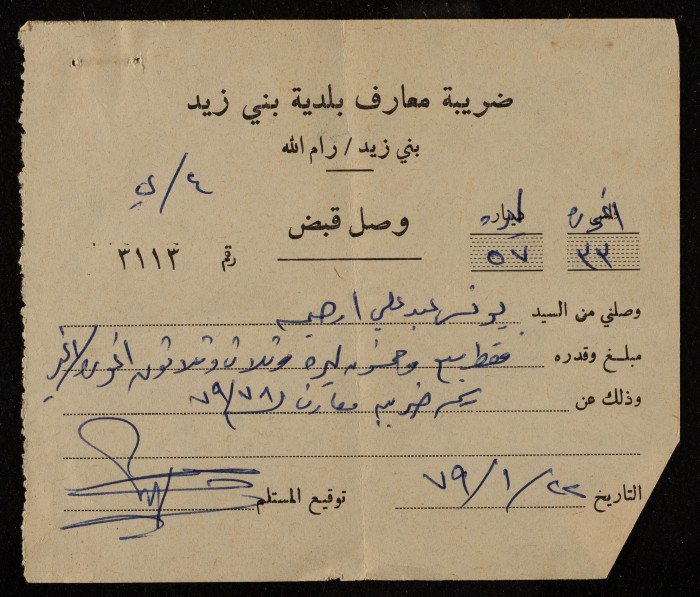 ضريبة معارف بلدية بني زيد
بني زيد / رام الله
٤/ي
وصل قبض
اغورة ليرة دينار
٣٣ ٥٧
رقم ٣١١٣
وصلني من السيد يونس عبد علي
مبلغ وقدره فقط سبع وخمسون ليره وثلاث وثلاثون اغوره لا غير
وذلك عن رسم ضريبه معارف ٧٩/٧٨
التاريخ ٢٢/١/٧٩ توقيع المستلم